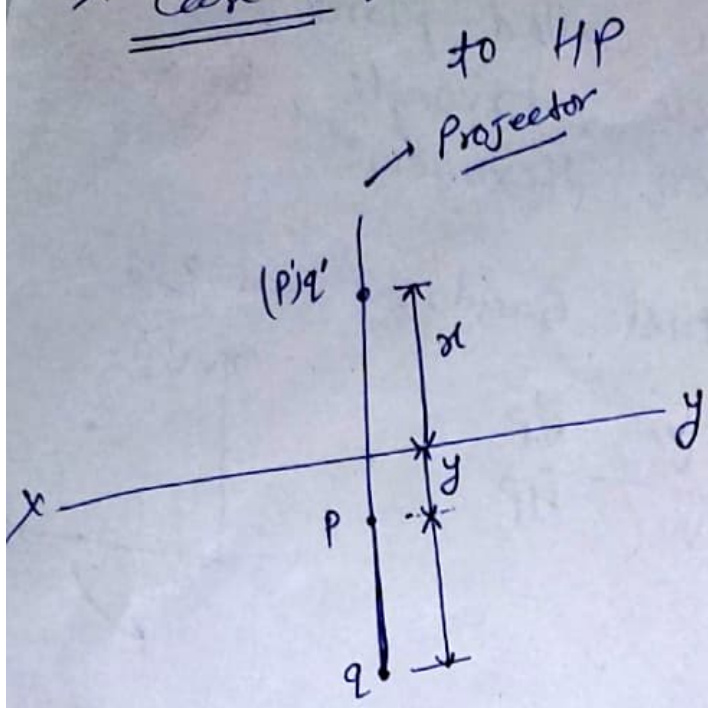 to HP
Projector
(p')q'
x
y
X
y
P
q